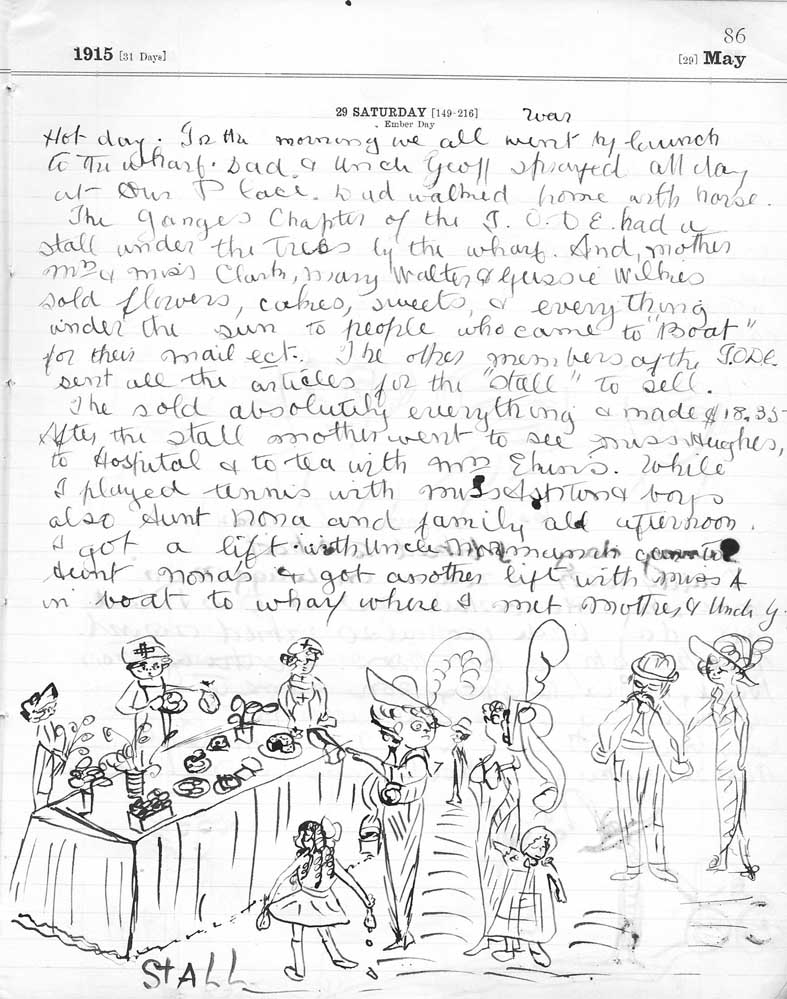 86
1915 [31 Days] [29] May
29 SATURDAY [149-216] war
Ember Day
Hot day. In the morning we all went by launch
to the wharf. Dad & Uncle Geoff sprayed all day
at Our Place. Dad walked home with horse.
The Ganges Chapter of the I.O.D.E. had a
stall under the trees by the wharf. And, mother
Mrs & Miss Clark, Mary Walter & Gussie Wilkes
sold flowers, cakes, sweets, & everything
under the sun to people who came to "Boat"
for their mail ect. The other members of the I.O.D.E.
sent all the articles for the "stall" to sell.
The sold absolutely everything & made $18.35
After the stall mother went to see Miss Hughes,
to Hospital & to tea with Mrs. While
I played tennis with Miss & boys
also Aunt Nona and family all afternoon.
I got a lift with Uncle
Aunt Nona's & got another lift with Miss A
in boat to wharf where I met Mother & Uncle G.
STALL